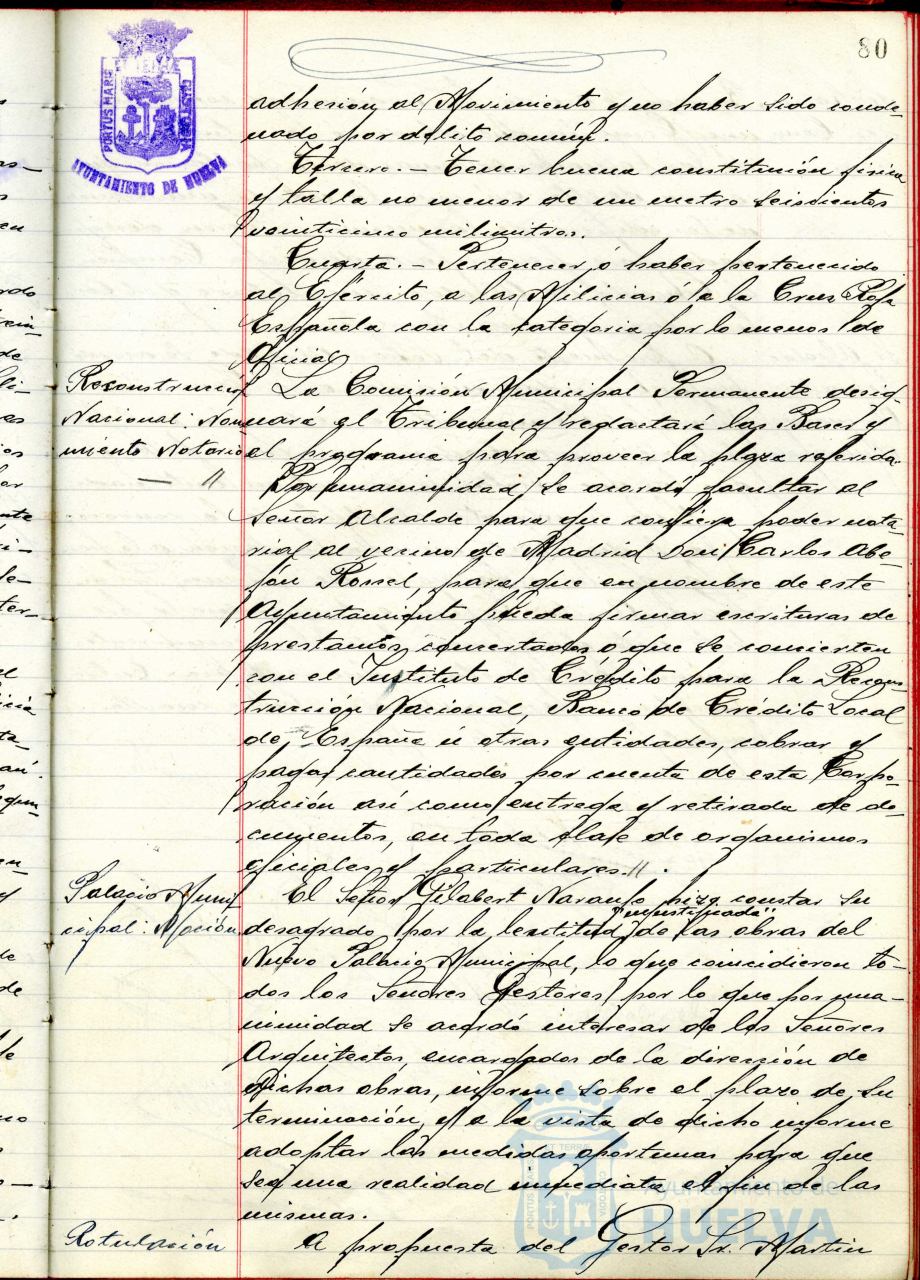 80
PORTUS MARIS ET TERRAE CUSTODIA
AYUNTAMIENTO DE HUELVA
adhesión al Movimiento y no haber sido conde-
nado por delito común.
Tercero.- Tener buena constitución física
y talla no menor de un metro seiscientos
veinticinco milímetros.
Cuarta.- Pertenecer ó haber pertenecido
al Ejército, a las Milicias ó a la Cruz Roja
Española con la categoria por lo menos de
Oficial
La Comisión Municipal Permanente desig-
nará el Tribunal y redactará las Bases y
el programa para proveer la plaza referida.
Reconstrucción
Nacional: Nom-
miento Notario
— 11
Por unanimidad se acordó facultar al
Señor Alcalde para que confiera poder nota-
rial al vecino de Madrid Don Carlos Abe-
jón Rossel, para que en nombre de este
Ayuntamiento pueda firmar escrituras de
prestamos concertados ó que se concierten
con el Instituto de Crédito para la Recons-
trucción Nacional, Banco de Crédito Local
de España ú otras entidades, cobrar y
pagar cantidades por cuenta de esta Corpo-
ración así como entrega y retirada de do-
cumentos, en toda clase de organismos
oficiales y particulares.11.
Palacio Muni
cipal: Moción
El Señor Gilabert Naranjo hizo constar su
desagrado por la lentitud "injustificada" de las obras del
Nuevo Palacio Municipal, lo que coincidieron to-
dos los Señores Gestores, por lo que por una-
nimidad se acordó interesar de los Señores
Arquitectos, encargados de la dirección de
dichas obras, informe sobre el plazo de su
terminación, y a la vista de dicho informe
adoptar las medidas oportunas para que
sea una realidad inmediata el fin de las
mismas.
Rotulación
A propuesta del Gestor Sr. Martin
Ayuntamiento de
HUELVA